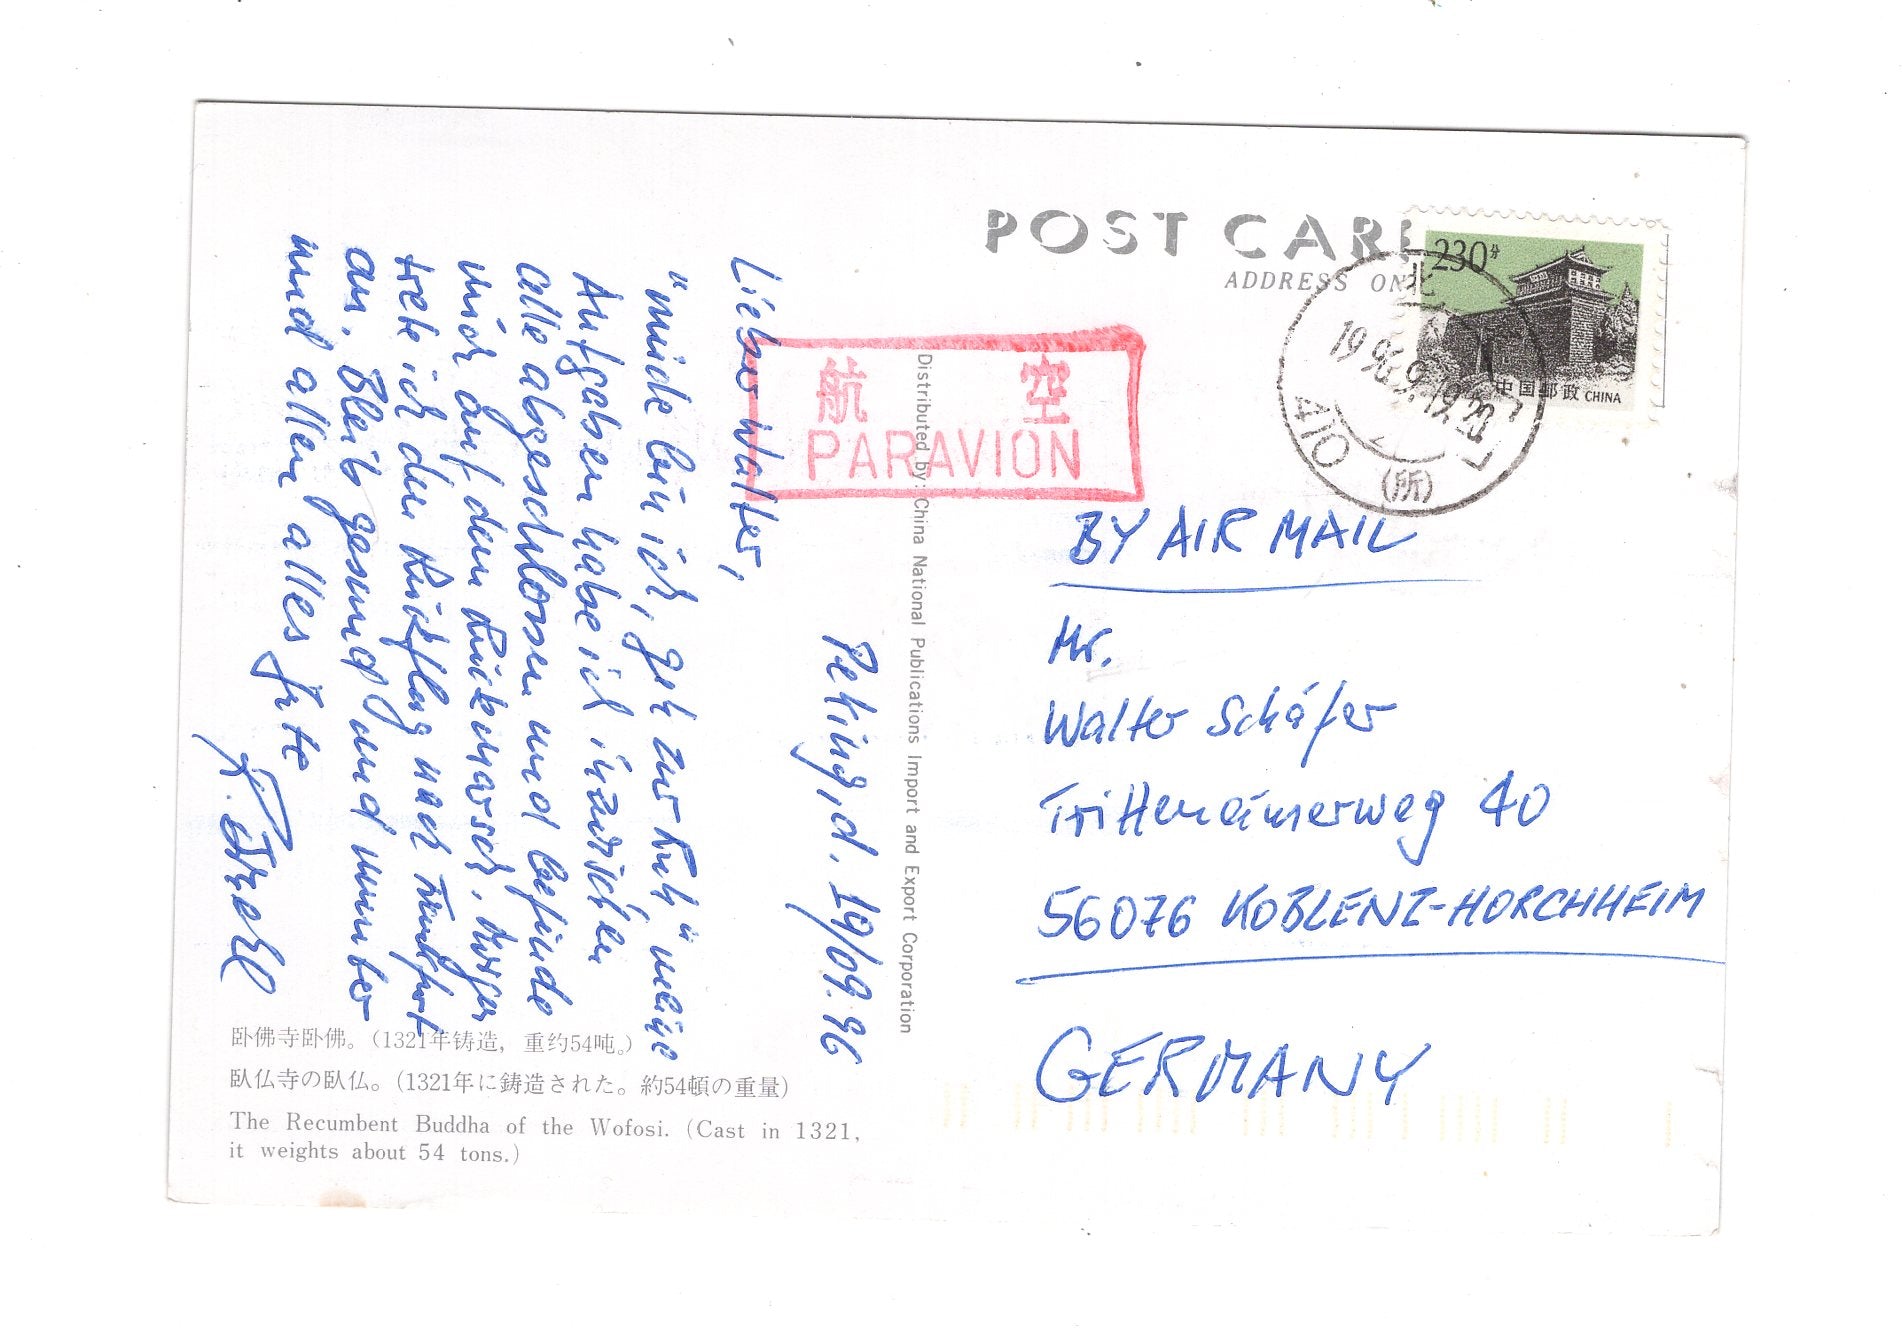 POST CAR
ADDRESS ON
230分
中国邮政 CHINA
北
1996.9.19.20
41C
(所)
航 空
PARAVION
Distributed by: China National Publications Import and Export Corporation
Peking, d. 19/09.96
Lieber Walter,
"müde bin ich, geh zur Ruh," meine
Aufgaben habe ich inzwischen
alle abgeschlossen und befinde
mich auf dem Rückmarsch. Morgen
trete ich den Rückflug nach Frankfurt
an. Bleib gesund und munter
und allen alles Gute
BY AIR MAIL
Mr.
Walter Schäfer
Trittenheimerweg 40
56076 KOBLENZ-HORCHHEIM
GERMANY
卧佛寺卧佛。(1321年铸造，重约54吨。)
臥仏寺の臥仏。(1321年に鋳造された。約54頓の重量)
The Recumbent Buddha of the Wofosi. (Cast in 1321,
it weights about 54 tons.)